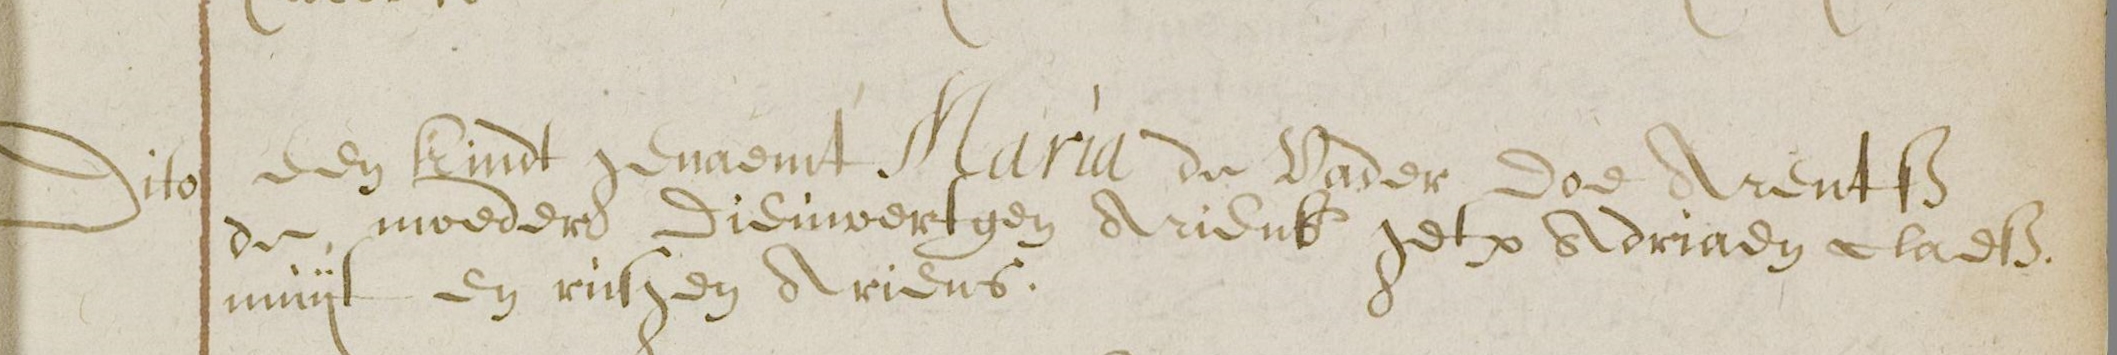 Dito een kindt genaemt Maria de Vader Doe Arentß
de moeder Diewertgen Ariens get Adriaen Claesß.
en Ariens.